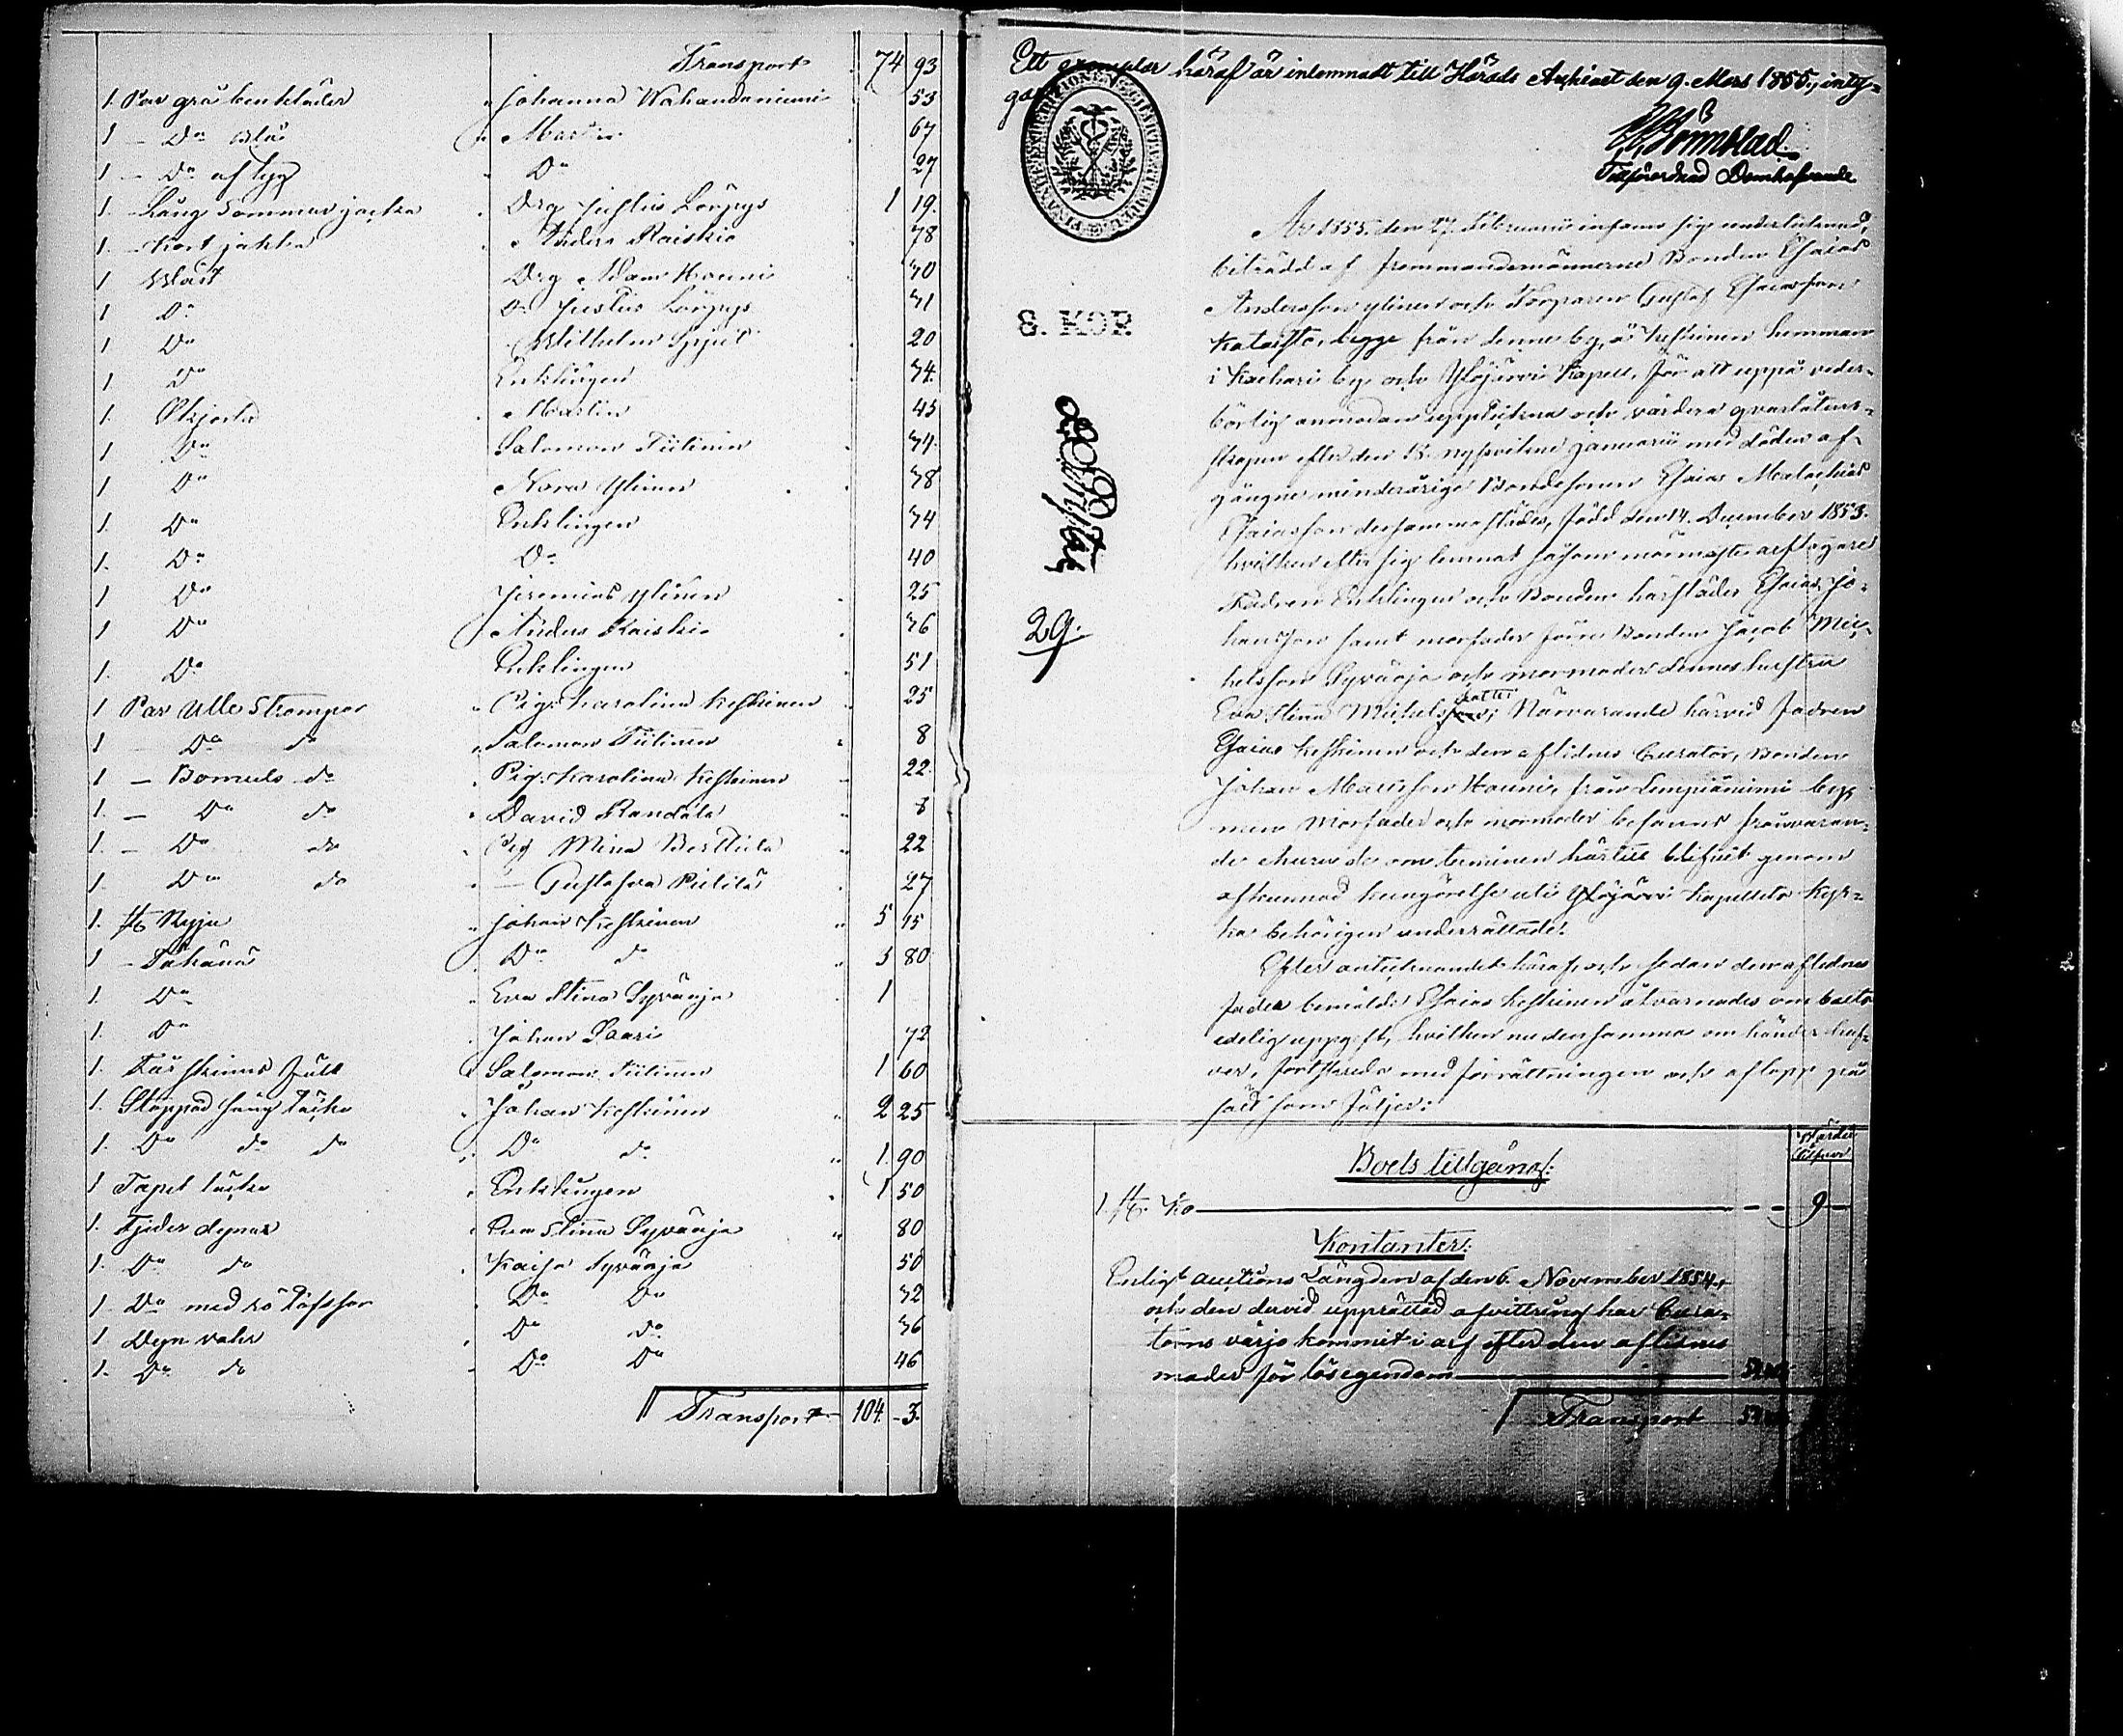 Transport 74 93
1. Par grå benkläder Johanna Wahandaniemi 53
1 - Do blå Martin 67
1 - Do af tyg Do 27
1. Lång Sommar jacka Drg Justus Lörpys 1 19.
1. Kort jacka Anders Raiskio 78
1 Wäst Drg Adam Hauni 70
1 Do Do Justus Lörpys 71
1 Do Wilhelm 20
1. Do Enklingen 74.
1. Skjorta Martin 45
1 Do Salomon Tiilinen 74.
1 Do Ylinen 78
1. Do Enklingen 74
1. Do Do 40
1 Do Jeremias Ylinen 25
1 Do Anders Raiskio 76
1. Do Enklingen 51
1 Par Ulle Strumpor Pig. Karolina Keskinen 25
1 - Do do Salomon Tiilinen 8
1 - Bomuls do Pig. Karolina Keskinen 22.
1. - Do do David Randala 8
1. - Do do Pig Mina Berttula 22
1. Do do - Gustafva Pietilä 27
1. st. Ryja Johan Keskinen 5 15
1 - Täkänä Do do 3 80
1. Do Eva Stina Syvänja 1
1. Do Johan Saari 72
1. Fårskinns fäll Salomon Tiilinen 1 60
1. Stoppad säng täcke Johan Keskinen 2 25
1. Do do do Do do 1. 90
1 Tapet täcke Enklingen 1 50
1. Fjäder dynor Eva Stina Syvänja 80
1. Do do Kaisa Syvänja 50
1 Do med Do Do 72
1 Dyn vahr Do do 76
1. Do do Do Do 46
Transport 104. 3.
Ett exemplar häraf är inlemnadt till Härads Arkivet den 9. Mars 1855., intygar
Tillförordnad Domhafvande
År 1855. den 27. Februarii infann sig undertecknad,
biträdd af fremmandemännerne Bonden Esaias
Andersson Ylinen och Torparen Gustaf Esaiasson
Katajisto, begge från denne by, å Keskinen hemman
i by och Ylöjärvi Kapell, för att uppå veder-
börlig anmodan uppteckna och värdera qvarlåten-
skapen efter den 15. nyssvikne Januarii med döden af-
gångne minderårige Bondesonen Esaias Malachias
Esaiasson dersammastädes, född den 14. December 1853.
hvilken efter sig lemnat såsom närmaste arftagare
Fadren Enklingen och Bonden härstädes Esaias Jo-
hansson samt morfader förre Bonden Jacob Mic-
helsson Syvänja och mormoder dennes hustru
Eva Stina Michelsdotter; Närvarande härvid fadren
Esaias Keskinen och den aflidnes Curator, Bonden
Johan Mattsson Hauni, från Lempiäniemi by;
men Morfader och mormoder befanns frånvaran-
de ehuru de om terminen härtill blifvit genom
afkunnad kungörelse uti Ylöjärvi Kapells Kyr-
ka behörigen underrättade.
Efter antecknandet häraf och sedan den aflidnes
fader bemälde Esaias Keskinen åtvarnades om
edelig uppgift, hvilken nu densamma om händer haf-
ver, fortskreds med förrättningen och aflopp på
sätt som följer:
S. KOP.
29.
Boets tillgång:
Värde
Silfver
1. st. Ko 9 -
Kontanter:
Enligt auctions Längden af den 6. November 1854.,
och den dervid upprättad afvittring har Cura-
torns värjo kommit i arf efter den aflidnes
moder för lösegendom
Transport